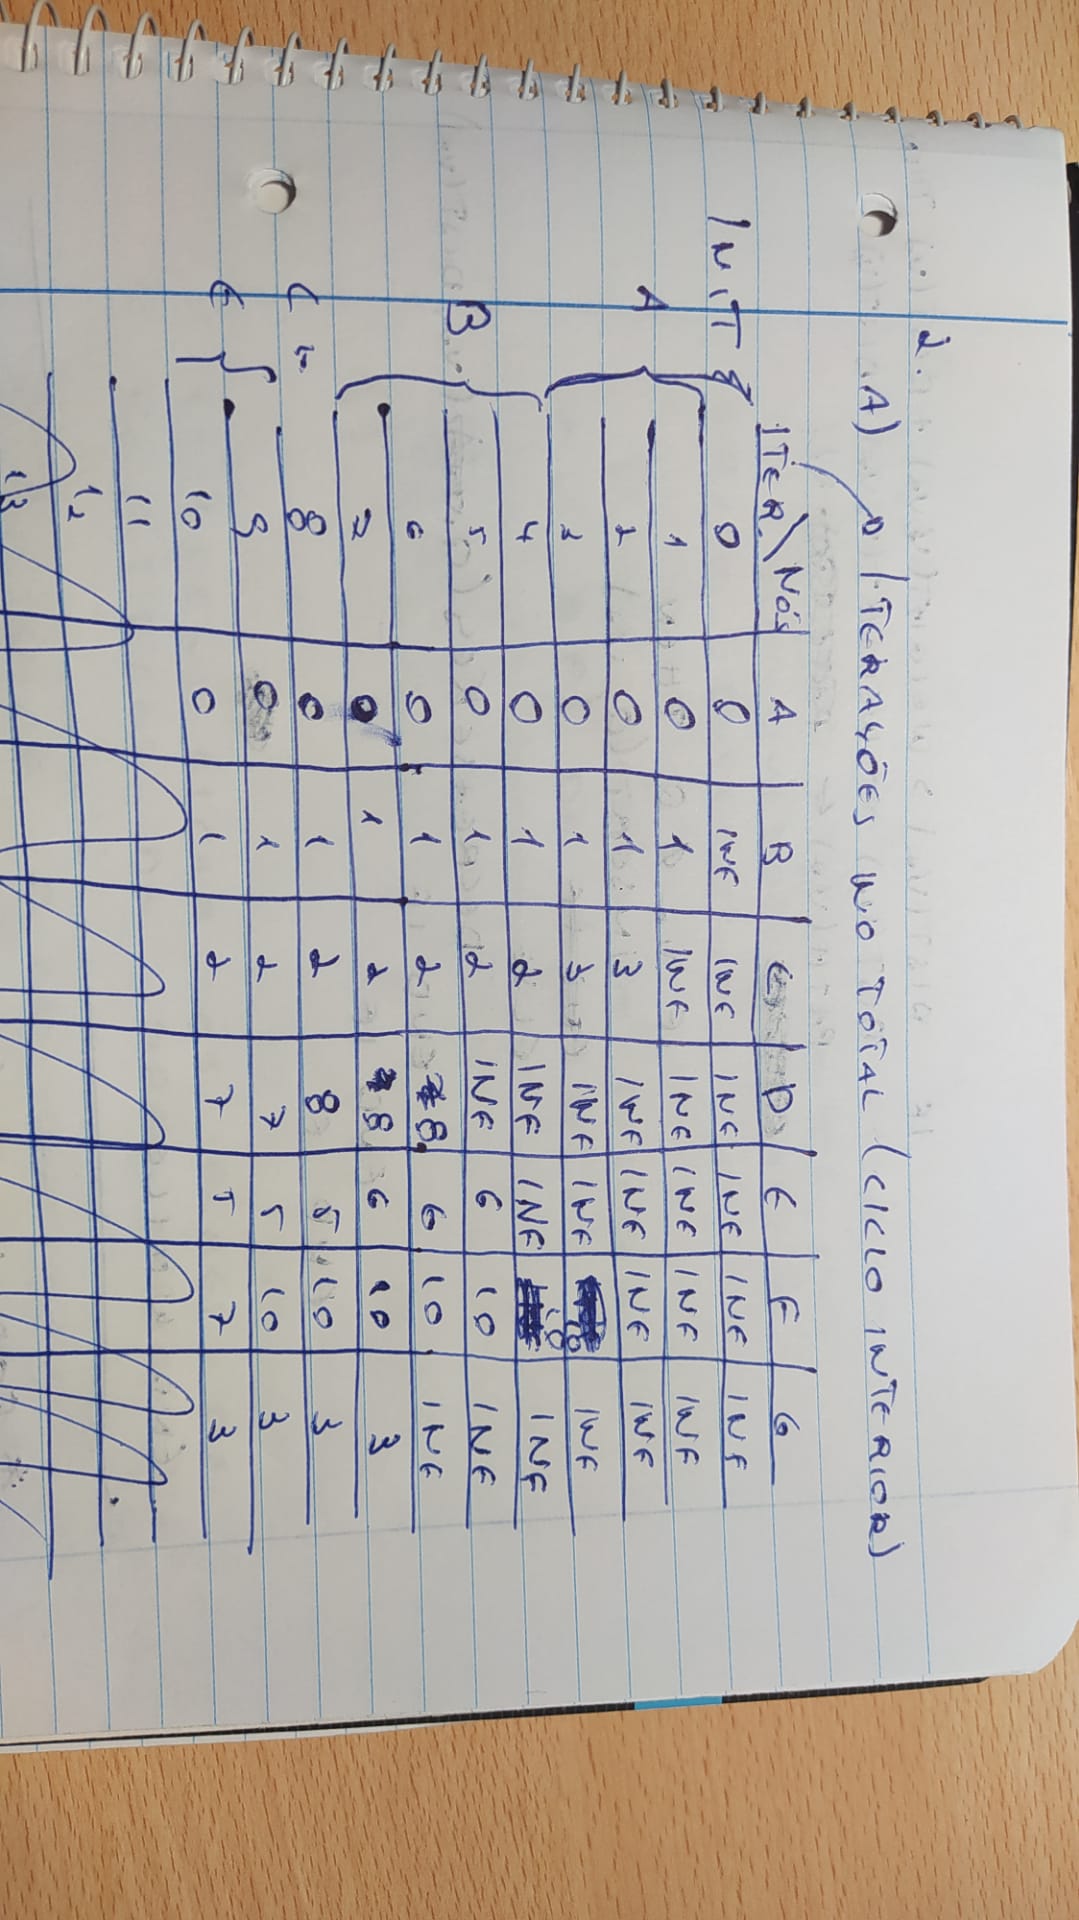 2.
A) ITERAÇÕES NO TOTAL (CICLO INTERIOR)
ITER \ NÓS A B C D E F G
INIT 0 0 INF INF INF INF INF INF
1 0 1 INF INF INF INF INF
A 2 0 1 3 INF INF INF INF
3 0 1 3 INF INF 10 INF
4 0 1 2 INF INF 10 INF
B 5 0 1 2 INF 6 10 INF
6 0 1 2 8 6 10 INF
7 0 1 2 8 6 10 3
C 8 0 1 2 8 5 10 3
9 0 1 2 7 5 10 3
E 10 0 1 2 7 5 7 3
11
12
13